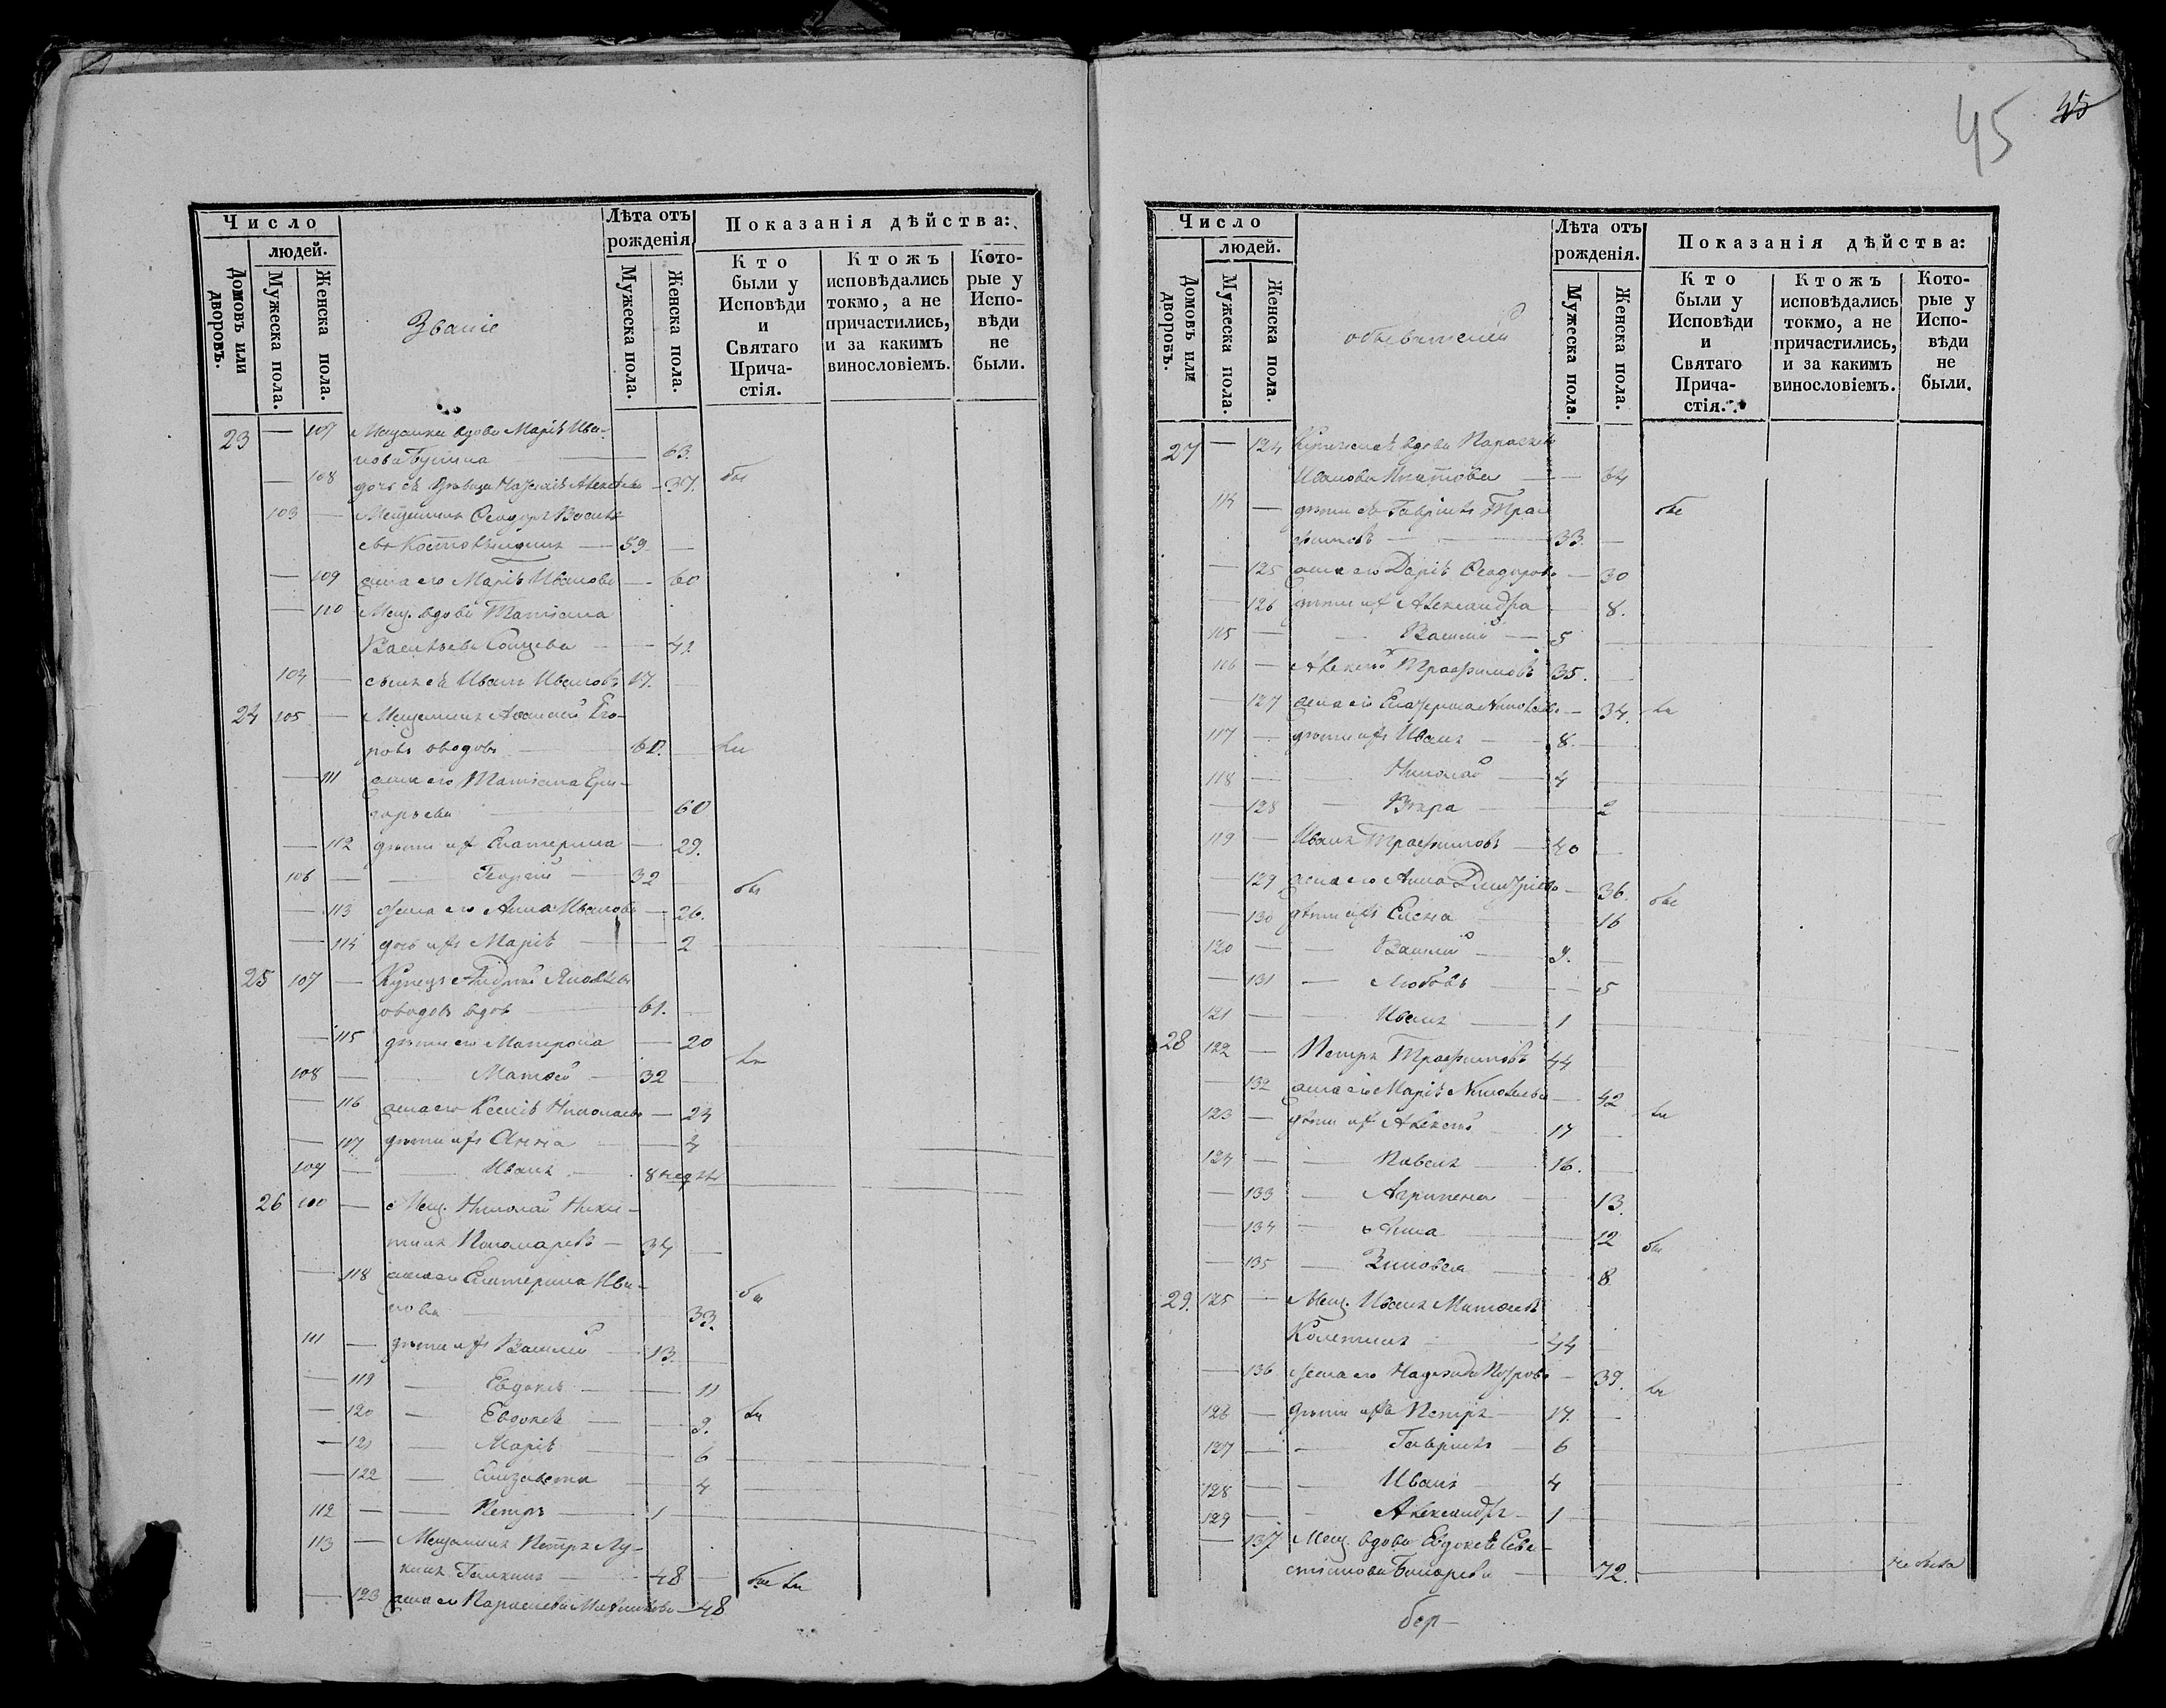 45 45
Число
людей.
Домовъ или дворовъ.
Мужеска пола.
Женска пола.
Званіе
Лѣта отъ рожденія
Мужеска пола.
Женска пола.
Показанія дѣйства:
Кто были у Исповѣди и Святаго Причастія.
Ктожъ исповѣдались токмо, а не причастились, и за какимъ винословіемъ.
Которые у Исповѣди не были.
23 — 107 Мещанка вдова Марія Ива-
нова — 63.
— 108 дочь ея — 37. бы
103 — Мещанинъ Ѳеодоръ
— 59. —
— 109 жена его Марія Иванова — 60
— 110 Мещ. вдова Татіана
Васильева — 41.
104 — сынъ ея Иванъ Ивановъ 17.
24 105 — Мещанинъ Его-
ровъ — 60. ли
— 111 жена его Татіана Гри-
горьева — 60
— 112 дѣти ихъ Екатерина — 29.
106 — — Георгій — 32 —
— 113 жена его Анна Иванова — 26. бы
— 114 дочь ихъ Марія — 2
25 107 — Купецъ Андрей Яковлевъ
вдовъ — 61. —
— 115 дѣти его Матрона — 20
108 — — Матѳей — 32 — ли
— 116 жена его Ксенія Николаева — 24
— 107 дѣти ихъ Анна — 4
109 — — Иванъ — 8 недѣль
26 100 — Мещ. Николай Ники-
тинъ Пономаревъ — 34 —
— 118 жена его Екатерина Ива-
нова — 33. бы
111 — дѣти ихъ Василій — 13. —
— 119 — Евдокія — 11
— 120 — Евдокія — 9. ли
— 121 — Марія — 6
— 122 — Елизавета — 4
112 — — Петръ — 1
113 — Мещанинъ Петръ Лу-
кинъ Галкинъ — 48 — бы ли
— 123 жена его Параскева — 48
Число
людей.
Домовъ или дворовъ.
Мужеска пола.
Женска пола.
обывателей
Лѣта отъ рожденія.
Мужеска пола.
Женска пола.
Показанія дѣйства:
Кто были у Исповѣди и Святаго Причастія.
Ктожъ исповѣдались токмо, а не причастились, и за какимъ винословіемъ.
Которые у Исповѣди не были.
27 — 124 вдова Параскева
Иванова — 64
114 — дѣти ея Гавріилъ Тра-
фимовъ — 33. — бы
— 125 жена его Дарія Ѳеодорова — 30
— 126 дѣти ихъ Александра — 8.
115 — — Василій — 5
116 — Алексѣй Трафимовъ 35. —
— 127 жена его — 34. ли
117 — дѣти ихъ Иванъ — 8. —
118 — — Николай — 4
— 128 — Вѣра — 2
119 — Иванъ Трафимовъ — 40 —
— 129 жена его Анна Дмитріева — 36. бы
— 130 дѣти ихъ Елена — 16
120 — — Василій — 9. —
— 131 — Любовь — 5
121 — — Иванъ — 1
28 122 — Петръ Трафимовъ 44
— 132 жена его Марія — 42 ли
123 — дѣти ихъ Алексѣй — 17 —
124 — — Павелъ — 16. —
— 133 — Агрипена — 13.
— 134 — Анна — 12 бы
— 135 — Зиновея — 8
29. 125 — Мещ. Иванъ Матѳеевъ
— 44 —
— 136 жена его Надежда Петрова — 39. ли
126 — дѣти ихъ Петръ — 17. —
127 — — Гавріилъ — 6
128 — — Иванъ — 4
129 — — Александръ — 1
— 137 Мещ. вдова Евдокія Сева-
стіянова — 72. — не была